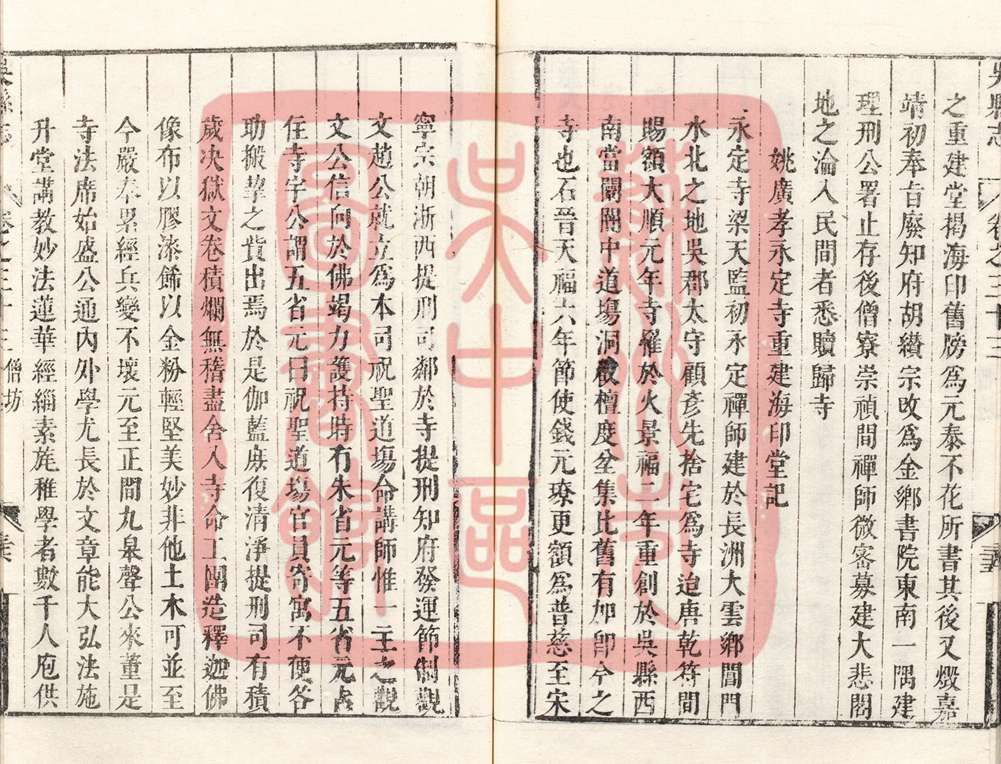 吳縣志
卷之三十三
之重建堂揭海印舊牓爲元泰不花所書其後又燬嘉
靖初奉旨廢知府胡纘宗改爲金鄉書院東南一隅建
理刑公署止存後僧寮崇禎間禪師微審募建大悲閣
地之淪入民間者悉贖歸寺
姚廣孝永定寺重建海印堂記
永定寺梁天監初永定禪師建於長洲大雲鄉閶門
水北之地吳郡太守顧彥先捨宅爲寺迨唐乾符間
賜額大順元年寺罹於火景福二年重創於吳縣西
南當闤闠中道塲洞徹檀度坌集比舊有加卽今之
寺也石晉天福六年節使錢元璙更額爲普慈至宋
寧宗朝浙西提刑司鄰於寺提刑知府發運節制觀
文趙公就立爲本司祝聖道塲命講師惟一主之觀
文公信向於佛竭力護持時有朱省元等五省元占
住寺宇公謂五省元曰祝聖道塲官員寄寓不便各
助搬挈之貲出焉於是伽藍旋復清淨提刑司有積
歲决獄文卷積爛無稽盡舍入寺命工團造釋迦佛
像布以膠漆餙以金粉輕堅美妙非他土木可並至
今嚴奉累經兵變不壞元至正間九臯聲公來董是
寺法席始盛公通內外學尤長於文章能大弘法施
升堂講教妙法蓮華經緇素旄稚學者數千人庖供
吳縣志
卷之三十三
僧坊
蘇州市
吳中區
圖書館